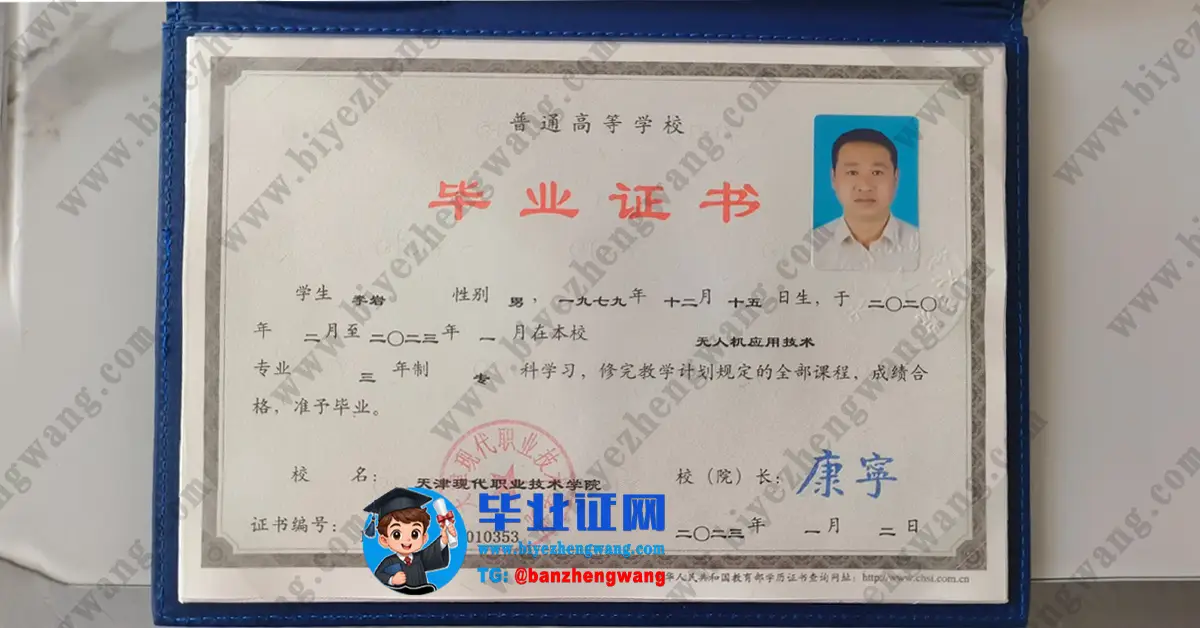 普通高等学校
毕业证书
学生 李岩 性别 男，一九七九年 十二月 十五 日生，于 二〇二〇
年 二月至 二〇二三年 一 月在本校 无人机应用技术
专业 三 年制 专 科学习，修完教学计划规定的全部课程，成绩合
格，准予毕业。
校 名： 天津现代职业技术学院 校（院）长： 康宁
证书编号： 010353 二〇二三年 一月 二日
毕业证网
www.biyezhengwang.com
TG: @banzhengwang
华人民共和国教育部学历证书查询网址：http://www.chsi.com.cn
现代职业技
www.biyezhengwang.com